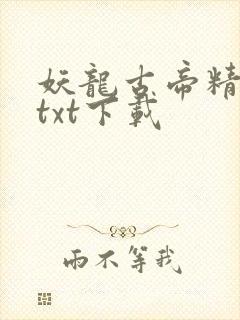 妖龍古帝精
txt下載
雨不等我